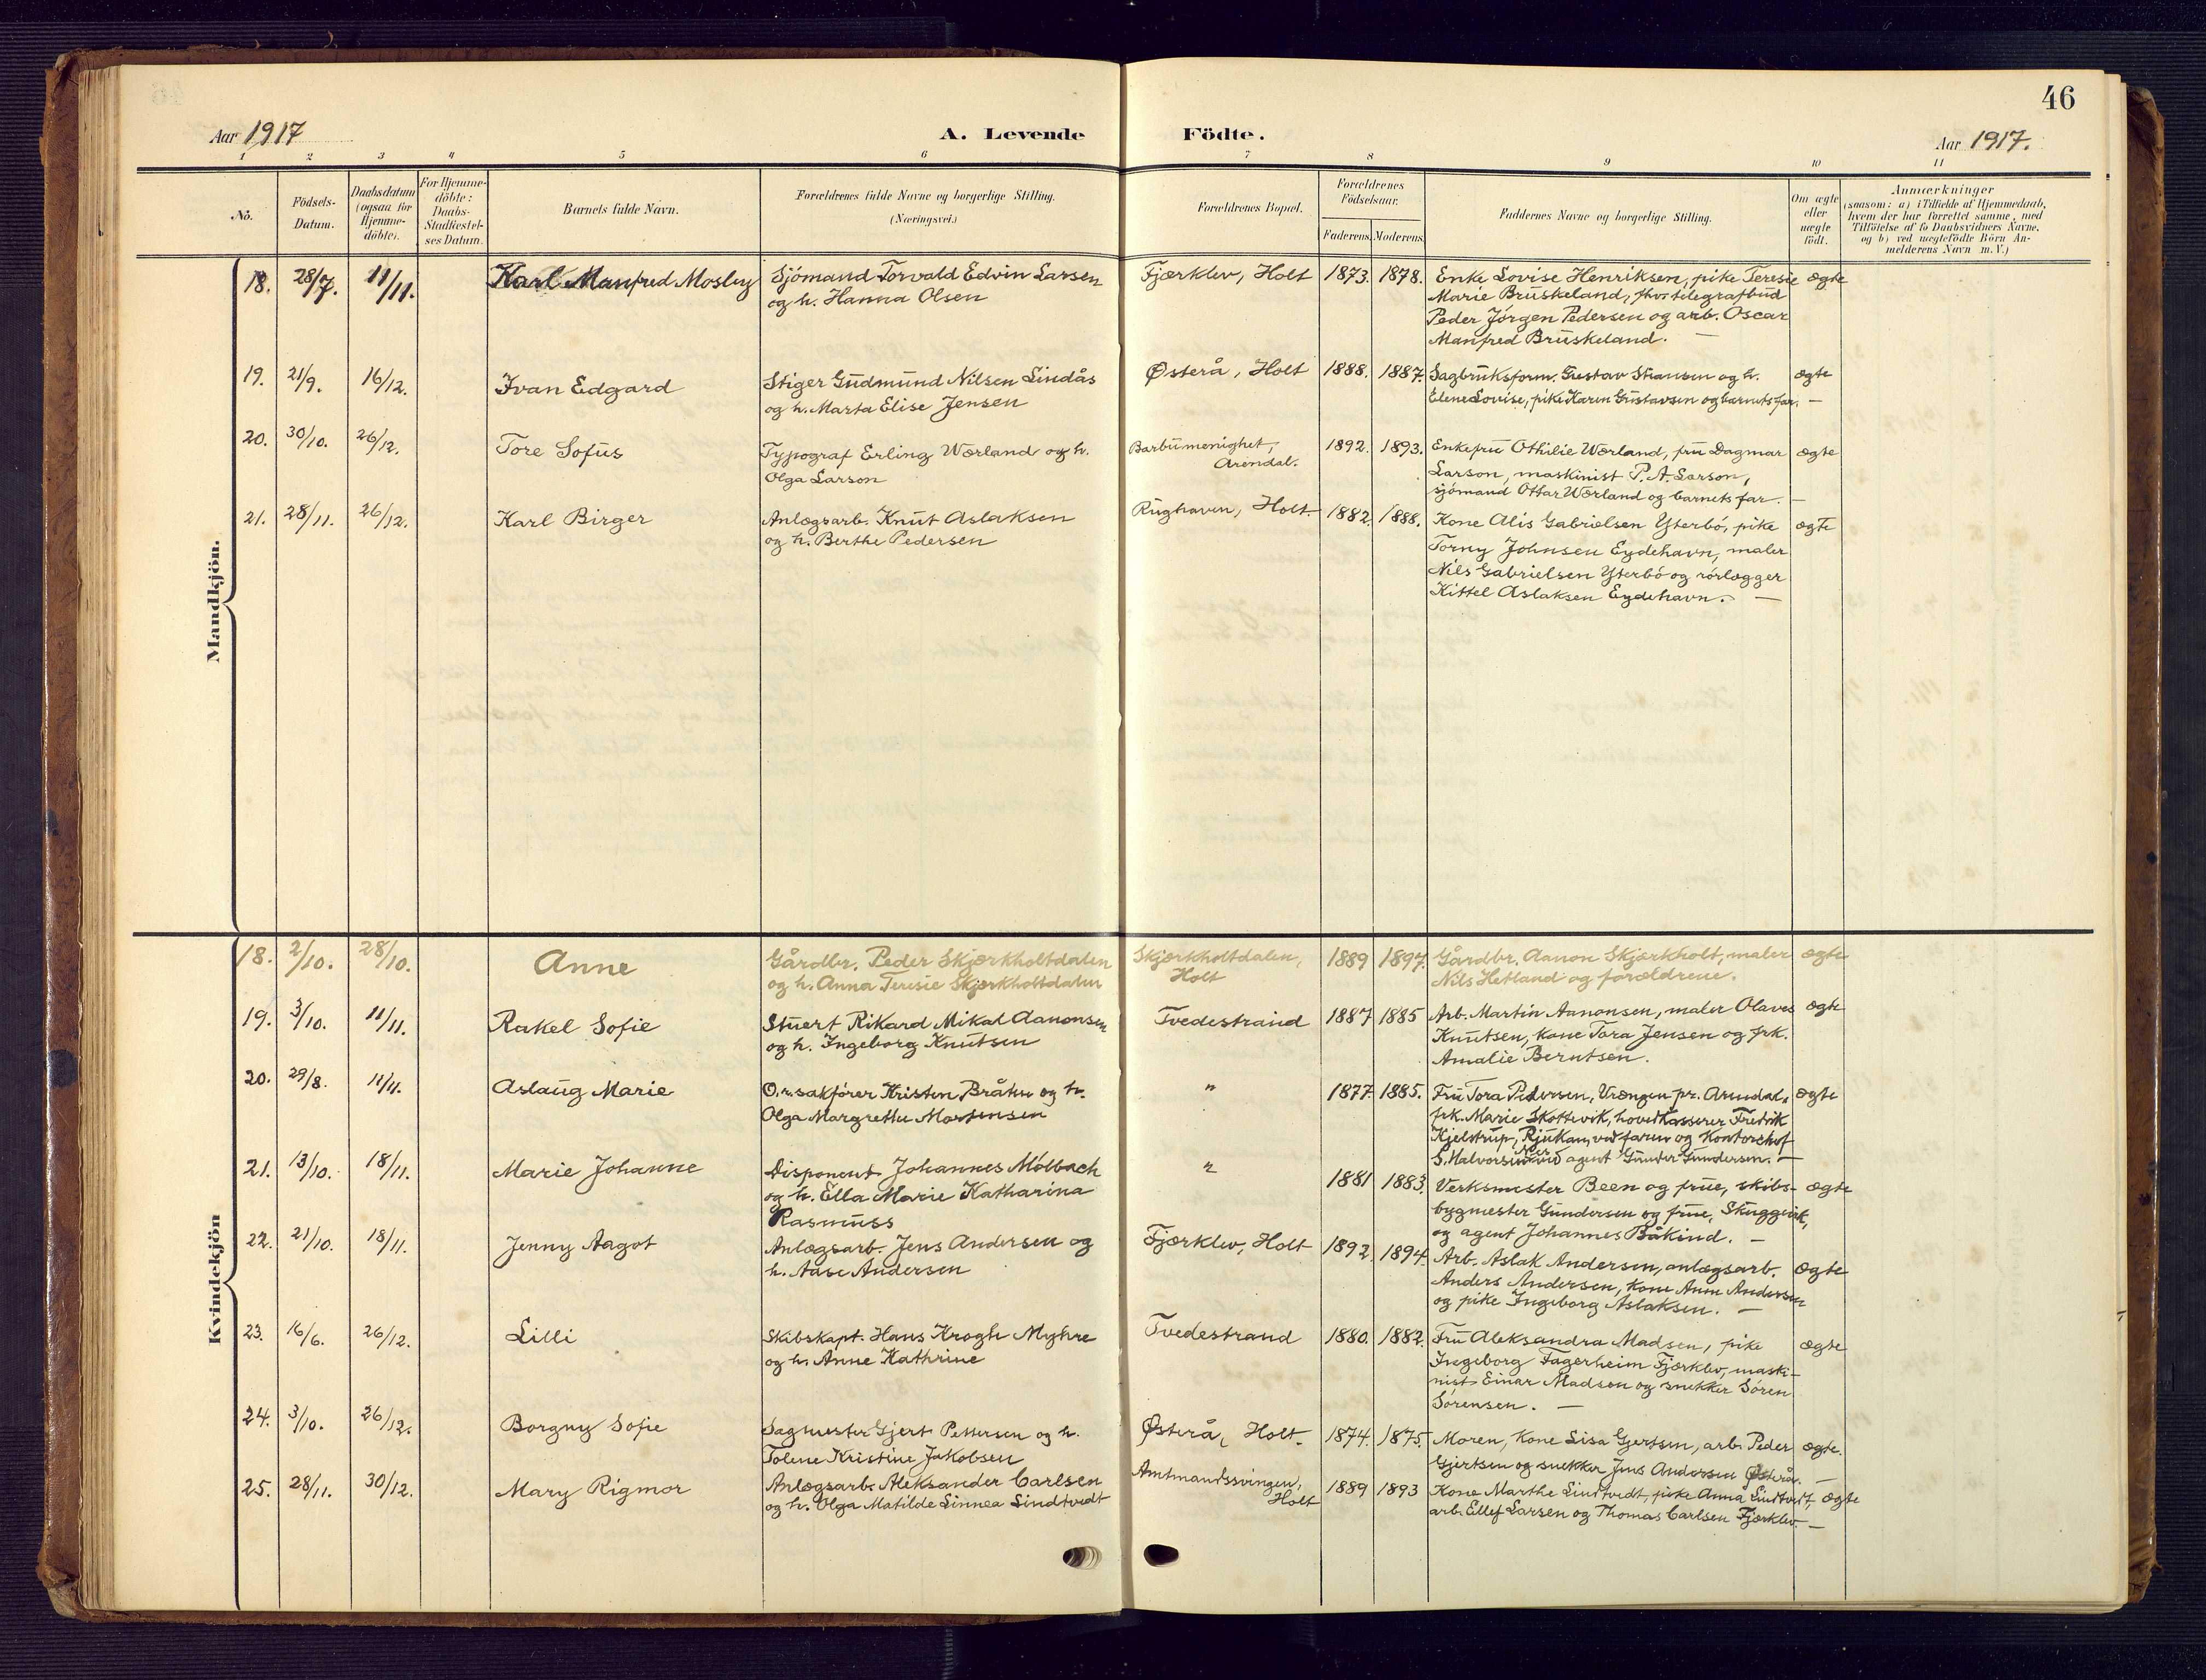 46
Aar 1917
A. Levende Födte.
Aar 1917.
1 2 3 4 5 6 7 8 9 10 11
No.
Födsels-
Datum.
Daabsdatum
(ogsaa for
Hjemme-
döbte).
For Hjemme-
döbte:
Daabs-
Stadfæstel-
ses Datum.
Barnets fulde Navn.
Forældrenes fulde Navne og borgerlige Stilling.
(Næringsvei.)
Forældrenes Bopæl.
Forældrenes
Födselsaar.
Faderens. Moderens.
Faddernes Navne og borgerlige Stilling.
Om ægte
eller
uægte
födt.
Anmærkninger
(saasom: a) i Tilfælde af Hjemmedaab,
hvem der har forrettet samme, med
Tilföielse af to Daabsvidners Navne,
og b) ved uægtefödte Börn An-
melderens Navn m. V.)
Mandkjön.
18. 28/7. 11/11. Karl Manfred Mosley
Sjömand Torvald Edvin Larsen
og h. Hanna Olsen
Fjærklev, Holt 1873. 1878.
Enke Lovise Henriksen, pike Teresie
Marie Bruskeland, fhv. telegrafbud
Peder Jörgen Pedersen og arb. Oscar
Manfred Bruskeland. —
ægte
19. 21/9. 16/12. Ivan Edgard
Stiger Gudmund Nilsen Lindås
og h. Marta Elise Jensen
Østerå, Holt 1888. 1887.
Sagbruksform. Gustav Stiansen og h.
Elene Lovise, pike Karen Gustavsen og barnets far. —
ægte
20. 30/10. 26/12. Tore Sofus
Typograf Erling Wærland og h.
Olga Larson
Barbu menighet,
Arendal.
1892. 1893.
Enkefru Othilie Wærland, fru Dagmar
Larson, maskinist P. A. Larson,
sjömand Ottar Wærland og barnets far. —
ægte
21. 28/11. 26/12. Karl Birger
Anlægsarb. Knut Aslaksen
og h. Berthe Pedersen
Rughaven, Holt. 1882. 1888.
Kone Alis Gabrielsen Yterbö, pike
Torny Johnsen Eydehavn, maler
Nils Gabrielsen Yterbö og rörlægger
Kittel Aslaksen Eydehavn. —
ægte
Kvindekjön
18. 2/10. 28/10. Anne
Gårdbr. Peder Skjærkholtdalen
og h. Anna Teresie Skjærkholtdalen
Skjærkholtdalen,
Holt
1889 1897.
Gårdbr. Aanon Skjærkholt, maler
Nils Hetland og forældrene.
ægte
19. 3/10. 11/11. Rakel Sofie
Stuert Rikard Mikal Aanonsen
og h. Ingeborg Knutsen
Tvedestrand 1887 1885
Arb. Martin Aanonsen, maler Olaves
Knutsen, kone Tora Jensen og frk.
Amalie Berntsen.
ægte
20. 29/8. 11/11. Aslaug Marie
O.r.sakförer Kristen Bråten og h.
Olga Margrethe Mortensen
" 1877. 1885.
Fru Tora Pedersen, Vrængen pr. Arendal,
frk. Marie Skottevik, hovedkasserer Fredrik
Kjelstrup, Rjukan, ved faren og Kontorchef
S. Halvorsen ved agent Gunder Gundersen. —
ægte
21. 13/10. 18/11. Marie Johanne
Disponent Johannes Mölbach
og h. Ella Marie Katharina
Rasmuss
" 1881 1883.
Verksmester Been og frue, skibs-
bygmester Gundersen og frue, Skuggevik,
og agent Johannes Båkind. —
ægte
22. 21/10. 18/11. Jenny Aagot
Anlægsarb. Jens Andersen og
h. Aase Andersen
Fjærklev, Holt 1892. 1894.
Arb. Aslak Andersen, anlægsarb.
Anders Andersen, kone Anne Andersen
og pike Ingeborg Aslaksen. —
ægte
23. 16/6. 26/12. Lilli
Skibskapt. Hans Krogh Myhre
og h. Anne Kathrine
Tvedestrand 1880. 1882.
Fru Aleksandra Madsen, pike
Ingeborg Fagerheim Fjærklev, maski-
nist Einar Madsen og snekker Sören
Sörensen. —
ægte
24. 3/10. 26/12. Borgny Sofie
Sagmester Gjert Pettersen og h.
Tolene Kristine Jakobsen
Østerå, Holt. 1874. 1875.
Moren, kone Lisa Gjertsen, arb. Peder
Gjertsen og snekker Jens Andersen Østerå. —
ægte.
25. 28/11. 30/12. Mary Rigmor
Anlægsarb. Aleksander Carlsen
og h. Olga Matilde Linnea Lindtvedt
Amtmandssvingen,
Holt
1889 1893
Kone Marthe Lindtvedt, pike Anna Lindtvedt,
arb. Ellef Larsen og Thomas Carlsen Fjærklev. —
ægte